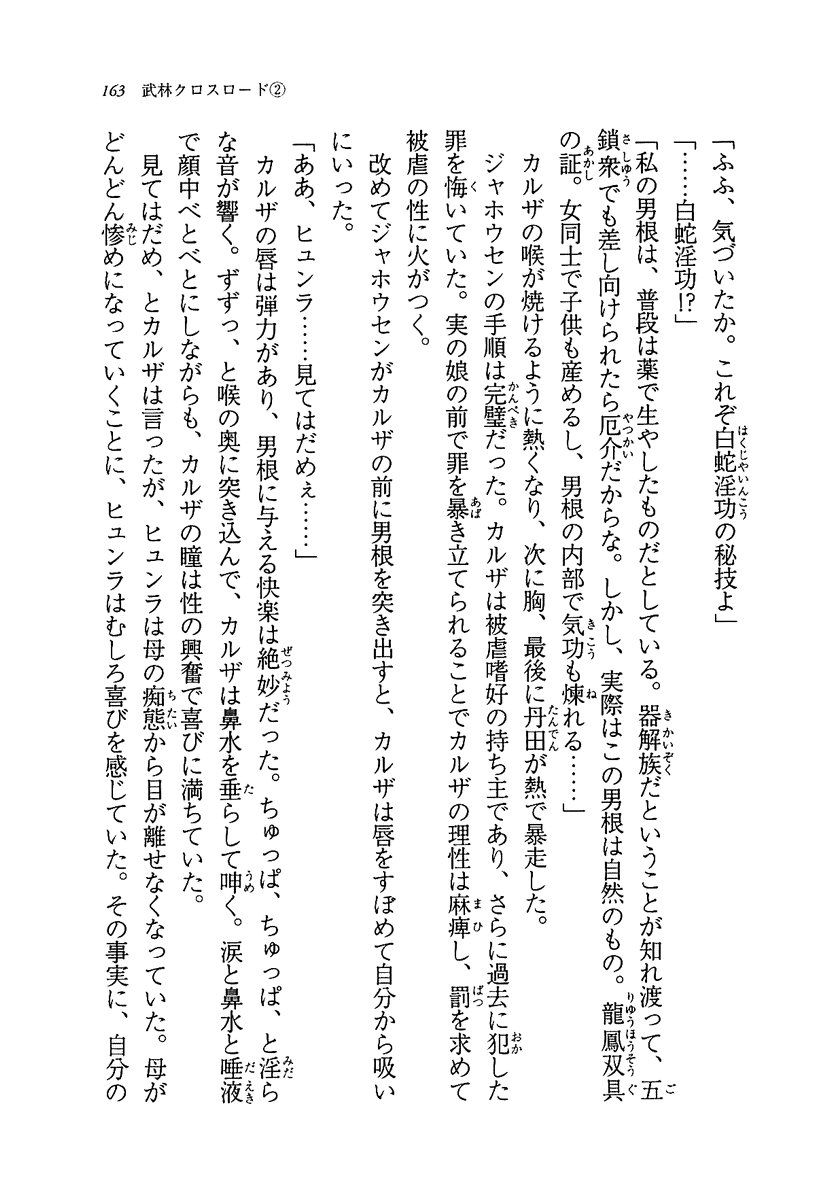 163 武林クロスロード②
「ふふ、気づいたか。これぞ白蛇淫功の秘技よ」
「……白蛇淫功!?」
「私の男根は、普段は薬で生やしたものだとしている。器解族だということが知れ渡って、五
鎖衆でも差し向けられたら厄介だからな。しかし、実際はこの男根は自然のもの。龍鳳双具
の証。女同士で子供も産めるし、男根の内部で気功も煉れる……」
カルザの喉が焼けるように熱くなり、次に胸、最後に丹田が熱で暴走した。
ジャホウセンの手順は完璧だった。カルザは被虐嗜好の持ち主であり、さらに過去に犯した
罪を悔いていた。実の娘の前で罪を暴き立てられることでカルザの理性は麻痺し、罰を求めて
被虐の性に火がつく。
改めてジャホウセンがカルザの前に男根を突き出すと、カルザは唇をすぼめて自分から吸い
にいった。
「ああ、ヒュンラ……見てはだめぇ……」
カルザの唇は弾力があり、男根に与える快楽は絶妙だった。ちゅっぱ、ちゅっぱ、と淫ら
な音が響く。ずずっ、と喉の奥に突き込んで、カルザは鼻水を垂らして呻く。涙と鼻水と唾液
で顔中べとべとにしながらも、カルザの瞳は性の興奮で喜びに満ちていた。
見てはだめ、とカルザは言ったが、ヒュンラは母の痴態から目が離せなくなっていた。母が
どんどん惨めになっていくことに、ヒュンラはむしろ喜びを感じていた。その事実に、自分の